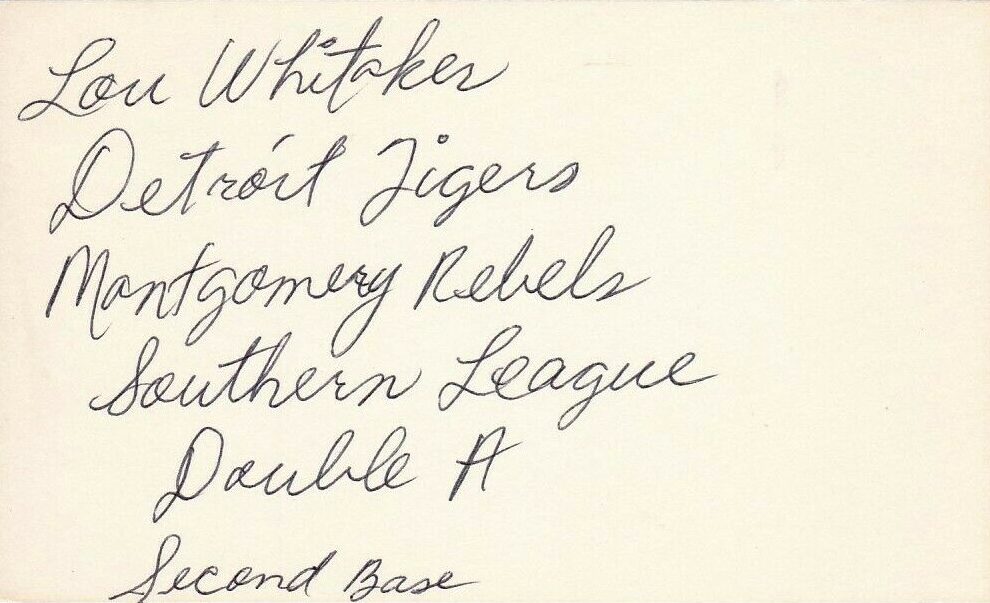 Lou Whitaker
Detroit Tigers
Montgomery Rebels
Southern League
Double A
Second Base